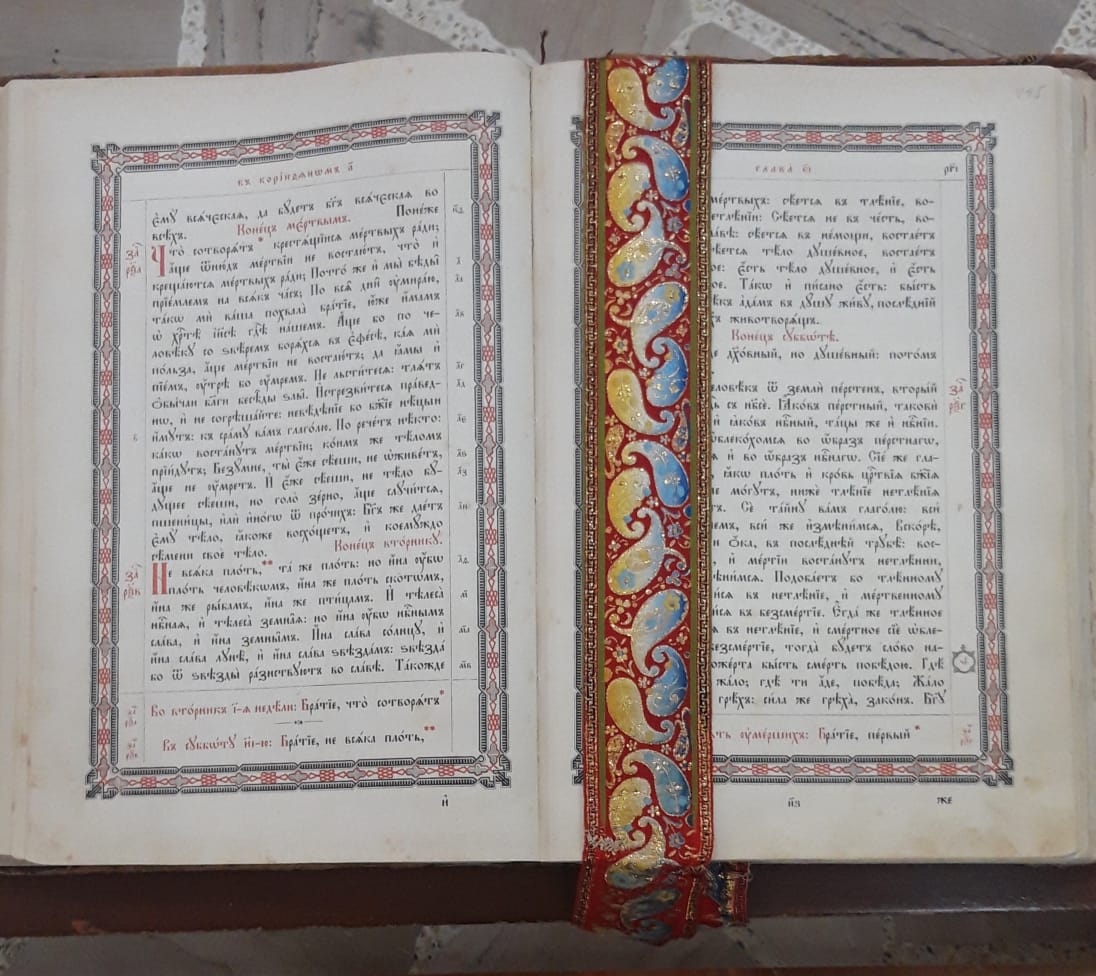 къ корі́нѳѧнѡмъ а҃
є҆мꙋ̀ всѧ́чєскаѧ, да бꙋ́детъ бг҃ъ всѧ́чєскаѧ во
всѣ́хъ. Коне́цъ мє́ртвымъ. Поне́же
Что̀ сотворѧ́тъ* крестѧ́щїисѧ мє́ртвыхъ ра́ди;
а҆́ще ѿню́дъ ме́ртвїи не востаю́тъ, что̀ и҆
креща́ютсѧ ме́ртвыхъ ра́ди; Почто́ же и҆ мы̀ бѣды̑
прїе́млемъ на всѧ́къ ча́съ; По всѧ̑ дни̑ ᲂу҆мира́ю,
та́кѡ мѝ ва́ша похвала̀ бра́тїе, ю҆́же и҆́мамъ
ѡ҆ хрⷭ҇тѣ̀ і҆и҃сѣ гдⷭ҇ѣ на́шемъ. А҆́ще бо по че-
ловѣ́кꙋ со ѕвѣ́ремъ борѧ́хсѧ въ є҆фе́сѣ, ка́ѧ мѝ
по́льза, а҆́ще ме́ртвїи не востаю́тъ; да ꙗ҆́мы и҆
пїе́мъ, ᲂу҆́трѣ бо ᲂу҆́мремъ. Не льсти́тесѧ: тлѧ́тъ
ѡ҆бы́чаи бл҃ги бєсѣ́ды ѕлы̑. И҆стрезви́тесѧ пра́вед-
нѡ, и҆ не согрѣша́йте: невѣ́дѣнїе бо бж҃їе нѣ́цыи
и҆́мꙋтъ: къ сра́мꙋ ва́мъ глаго́лю. Но рече́тъ нѣ́кто:
ка́кѡ воста́нꙋтъ ме́ртвїи; ко́имъ же тѣ́ломъ
прїи́дꙋтъ; Безꙋ́мне, ты̀ є҆́же сѣ́еши, не ѡ҆живе́тъ,
а҆́ще не ᲂу҆́мретъ. И҆ є҆́же сѣ́еши, не тѣ́ло бꙋ́-
дꙋщее сѣ́еши, но го́ло зерно̀, а҆́ще слꙋчи́тсѧ,
пшени́цы, и҆лѝ и҆но́гѡ ѿ про́чихъ: Бг҃ъ же дае́тъ
є҆мꙋ̀ тѣ́ло, ꙗ҆́коже восхо́щетъ, и҆ коемꙋ́ждо
сѣ́мени своѐ тѣ́ло. Коне́цъ вто́рникꙋ.
Не всѧ́ка пло́ть,** та́ же пло́ть: но и҆́на ᲂу҆́бѡ
пло́ть человѣ́кѡмъ, и҆́на же пло́ть скотѡ́мъ,
и҆́на же ры́бамъ, и҆́на же пти́цамъ. И҆ тѣлеса̀
нбⷭ҇наѧ, и҆ тѣлеса̀ зємна́ѧ: но и҆́на ᲂу҆́бѡ нбⷭ҇нымъ
сла́ва, и҆ и҆́на зємны́мъ. И҆́на сла́ва со́лнцꙋ, и҆
и҆́на сла́ва лꙋнѣ̀, и҆ и҆́на сла́ва ѕвѣзда́мъ: ѕвѣзда́
бо ѿ ѕвѣзды̀ ра́знствꙋютъ во сла́вѣ. Та́кожде
Во вто́рникъ і҃-ѧ недѣ́ли: Бра́тїе, что̀ сотворѧ́тъ*
Въ сꙋббѡ́тꙋ и҃і-ю: Бра́тїе, не всѧ́ка пло́ть,**
и҆
глава̀ є҃і
рк҃і
ме́ртвыхъ: сѣ́етсѧ въ тлѣ́нїе, во-
сѣ́етсѧ не въ че́сть, во-
сѣ́етсѧ въ не́мощи, востае́тъ
тѣ́ло дꙋше́вное, востае́тъ
є҆́сть тѣ́ло дꙋше́вное, и҆ є҆́сть
Та́кѡ и҆ пи́сано є҆́сть: бы́сть
а҆да́мъ въ дꙋ́шꙋ жи́вꙋ, послѣ́днїй
животворѧ́щъ.
Коне́цъ сꙋббѡ́тѣ.
дꙋхо́вный, но дꙋше́вный: пото́мъ
ѿ землѝ пе́рстенъ, вторы́й
съ нб҃сѐ. Ꙗ҆ко́въ пе́рстный, такові́
и҆ ꙗ҆ко́въ нбⷭ҇ный, та́цы же и҆ нбⷭ҇нїи.
во ѡ҆́бразъ пе́рстнагѡ,
и҆ во ѡ҆́бразъ нбⷭ҇нагѡ. Сїе́ же гла-
ꙗ҆́кѡ пло́ть и҆ кро́вь црⷭ҇твїѧ бж҃їѧ
мо́гꙋтъ, нижѐ тлѣ́нїе нетлѣ́нїѧ
Сѐ та́йнꙋ ва́мъ глаго́лю: всѝ
всѝ же и҆змѣни́мсѧ, Вско́рѣ,
ѻ҆́ка, въ послѣ́дней трꙋбѣ̀: вос-
и҆ ме́ртвїи воста́нꙋтъ нетлѣ́нни,
Подоба́етъ бо тлѣ́нномꙋ
въ нетлѣ́нїе, и҆ ме́ртвенномꙋ
въ безсме́ртїе. Є҆гда́ же тлѣ́нное
въ нетлѣ́нїе, и҆ сме́ртное сїѐ ѡ҆бле-
тогда̀ бꙋ́детъ сло́во на-
бы́сть сме́рть побѣ́дою. Гдѣ́
жа́ло; гдѣ́ ти а҆́де, побѣ́да; Жа́ло
грѣ́хъ: си́ла же грѣха̀, зако́нъ. Бг҃ꙋ
ᲂу҆ме́ршихъ: Бра́тїе, пе́рвый*
н҃з
же